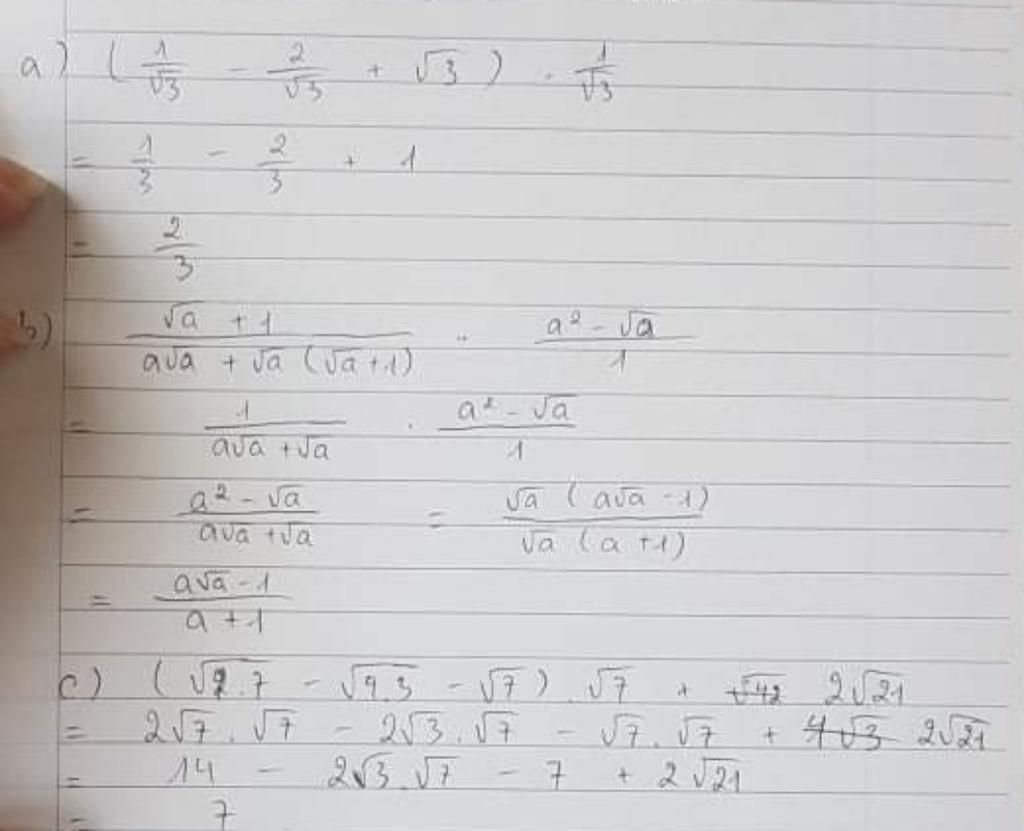 a) ( 1/√3 - 2/√3 + √3 ) . 1/√3
= 1/3 - 2/3 + 1
= 2/3
b) (√a + 1)/(a√a + √a (√a+1)) .. (a² - √a)/1
= 1/(a√a + √a) . (a² - √a)/1
= (a² - √a)/(a√a + √a) = (√a (a√a - 1))/(√a (a + 1))
= (a√a - 1)/(a + 1)
c) ( √.7 - √9.3 - √7 ) . √7 + √42 2√21
= 2√7 . √7 - 2√3 . √7 - √7 . √7 + 4√3 2√21
= 14 - 2√3 . √7 - 7 + 2√21
= 7